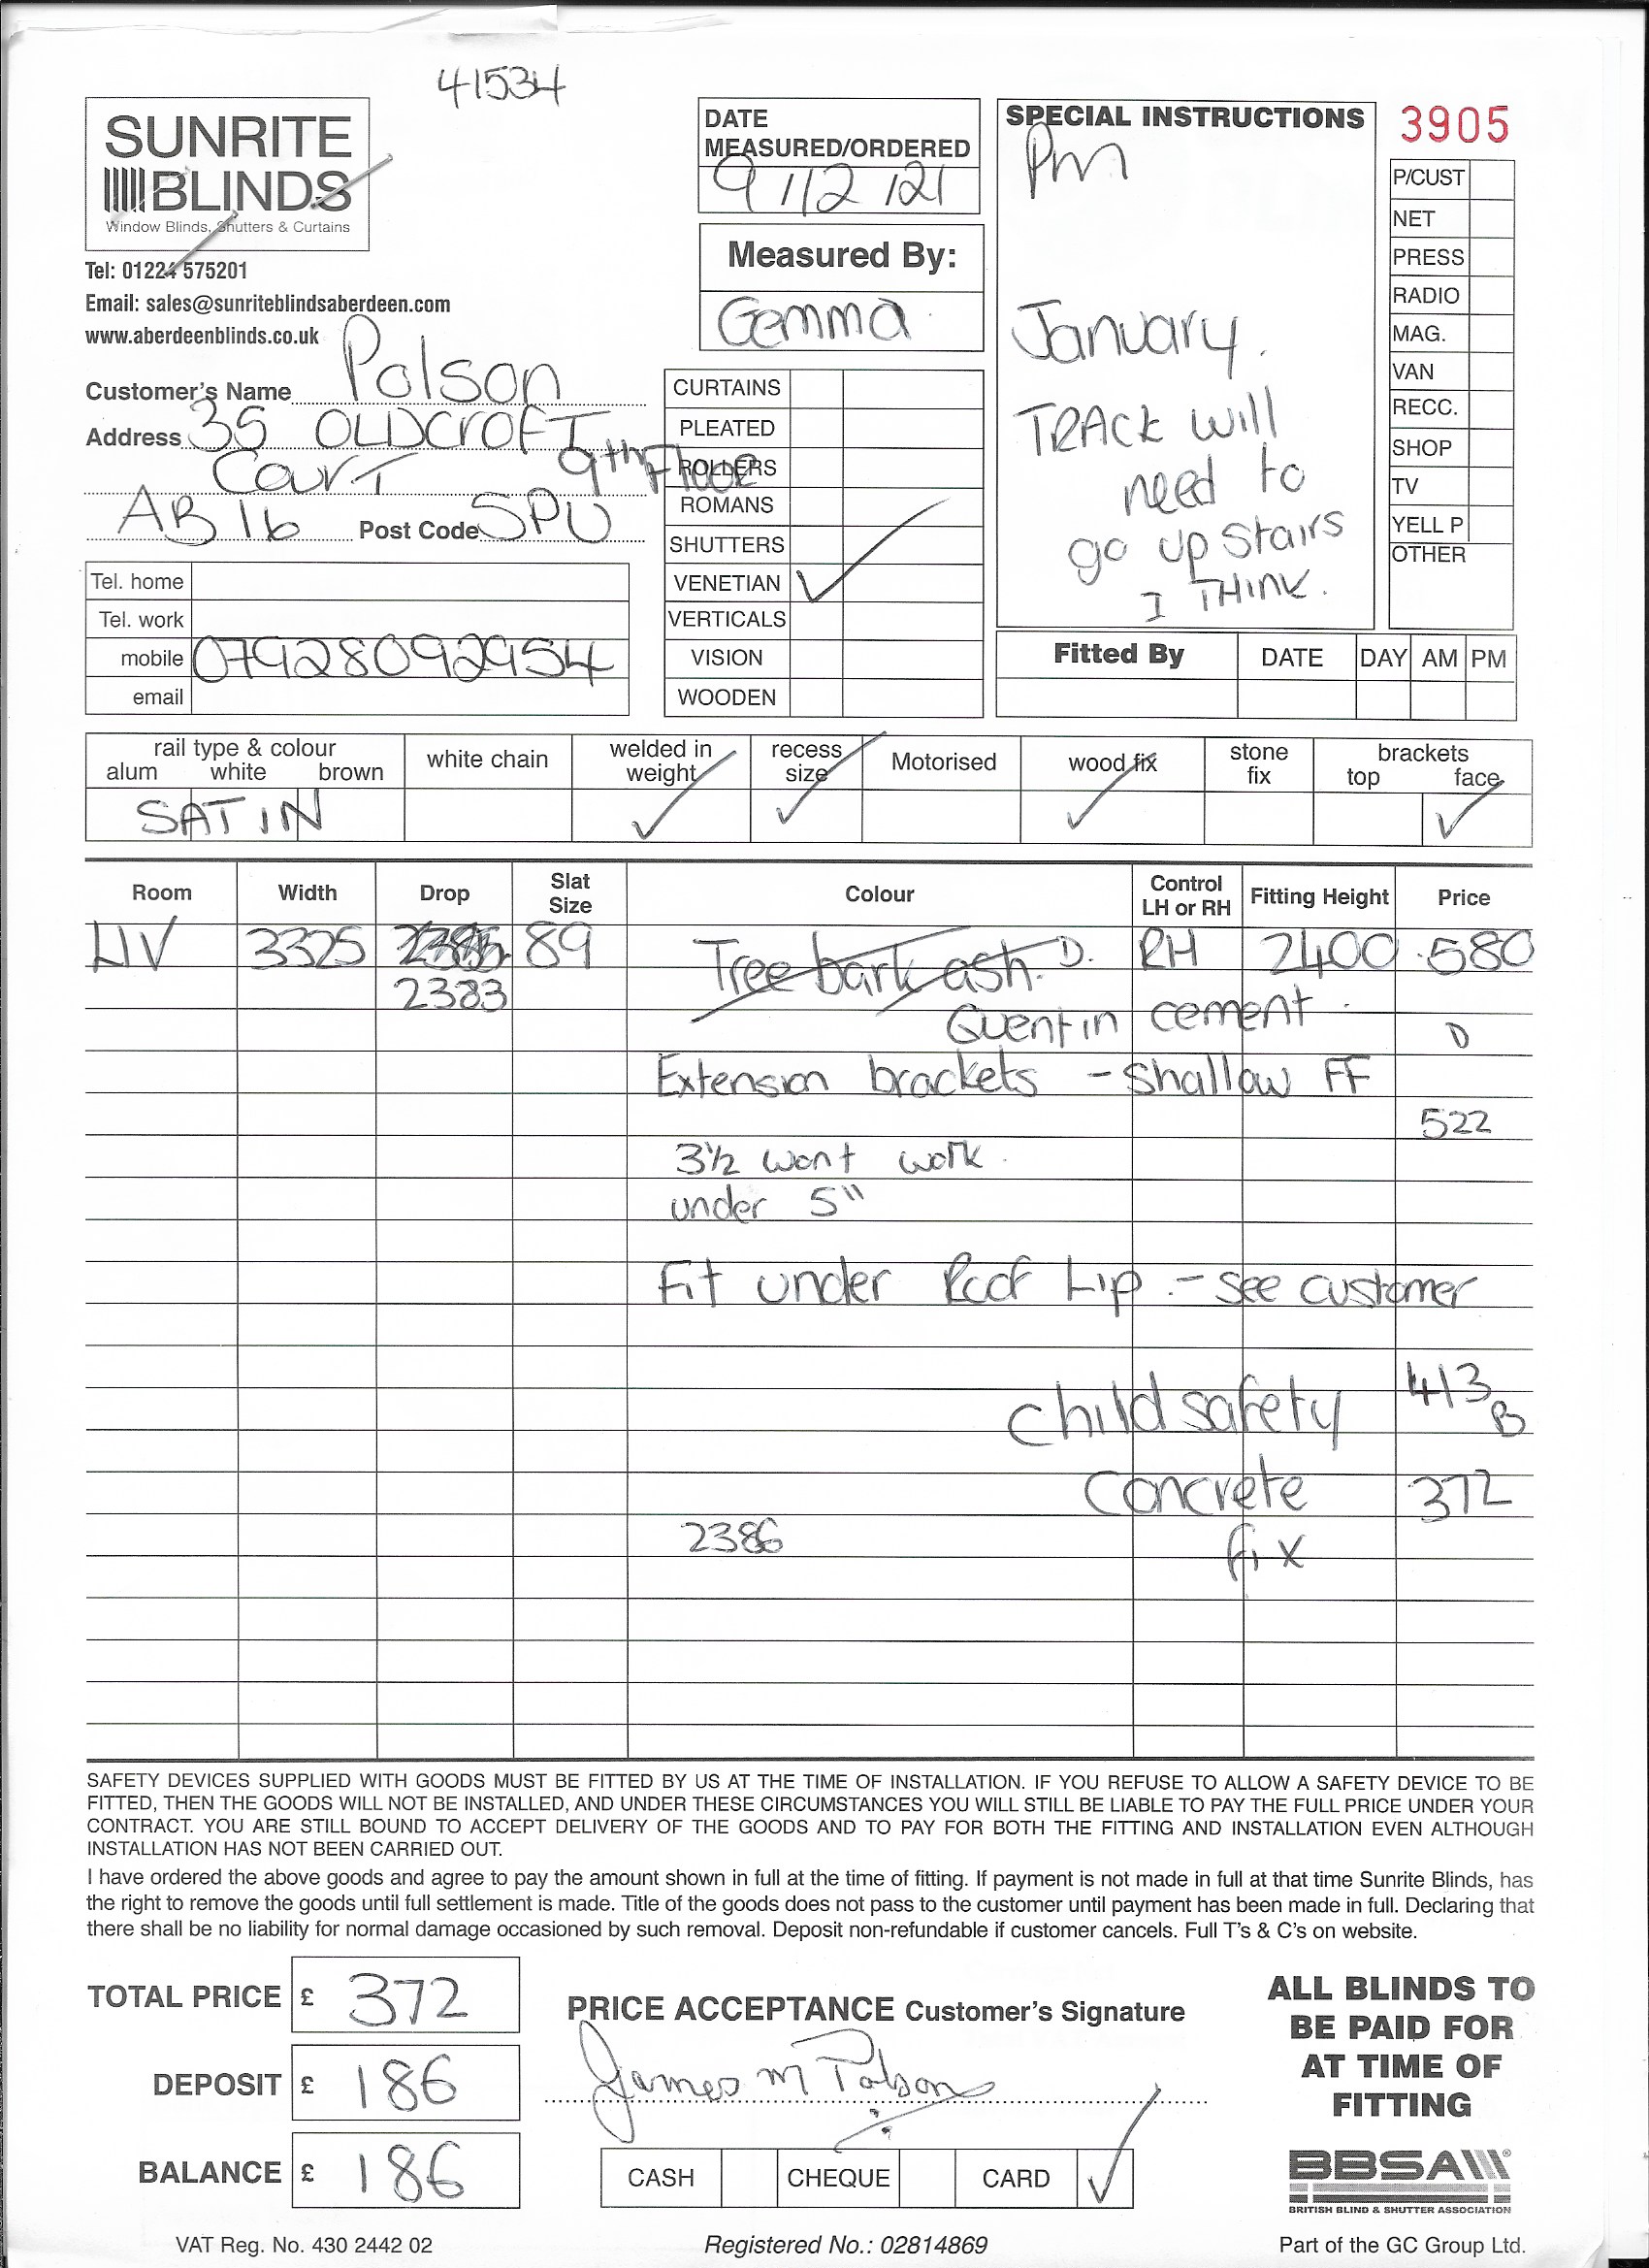 41534
SUNRITE
BLINDS
Window Blinds, Shutters & Curtains
Tel: 01224 575201
Email: sales@sunriteblindsaberdeen.com
www.aberdeenblinds.co.uk
DATE
MEASURED/ORDERED
9/12/21
Measured By:
Gemma
SPECIAL INSTRUCTIONS
Pm
January.
TRACK will
need to
go up stairs
I THINK.
3905
P/CUST
NET
PRESS
RADIO
MAG.
VAN
RECC.
SHOP
TV
YELL P
OTHER
Customer's Name Polson
Address 35 OLDCROFT
Court 9th Floor
AB16 Post Code 5PU
Tel. home
Tel. work
mobile 07928092954
email
CURTAINS
PLEATED
ROLLERS
ROMANS
SHUTTERS
VENETIAN ✓
VERTICALS
VISION
WOODEN
Fitted By DATE DAY AM PM
rail type & colour
alum white brown
SATIN
white chain
welded in
weight ✓
recess
size ✓
Motorised
wood fix ✓
stone
fix
brackets
top face ✓
Room Width Drop Slat Size Colour Control LH or RH Fitting Height Price
LIV 3325 89 Tree bark ash. D. RH 2400 580
2383 Quentin cement D
Extension brackets - shallow FF
522
3½ wont work
under 5"
Fit under Roof Lip - see customer
Child safety 413 B
Concrete 372
2386 fix
SAFETY DEVICES SUPPLIED WITH GOODS MUST BE FITTED BY US AT THE TIME OF INSTALLATION. IF YOU REFUSE TO ALLOW A SAFETY DEVICE TO BE
FITTED, THEN THE GOODS WILL NOT BE INSTALLED, AND UNDER THESE CIRCUMSTANCES YOU WILL STILL BE LIABLE TO PAY THE FULL PRICE UNDER YOUR
CONTRACT. YOU ARE STILL BOUND TO ACCEPT DELIVERY OF THE GOODS AND TO PAY FOR BOTH THE FITTING AND INSTALLATION EVEN ALTHOUGH
INSTALLATION HAS NOT BEEN CARRIED OUT.
I have ordered the above goods and agree to pay the amount shown in full at the time of fitting. If payment is not made in full at that time Sunrite Blinds, has
the right to remove the goods until full settlement is made. Title of the goods does not pass to the customer until payment has been made in full. Declaring that
there shall be no liability for normal damage occasioned by such removal. Deposit non-refundable if customer cancels. Full T's & C's on website.
TOTAL PRICE £ 372
DEPOSIT £ 186
BALANCE £ 186
PRICE ACCEPTANCE Customer's Signature
James M Polson
CASH CHEQUE CARD ✓
ALL BLINDS TO
BE PAID FOR
AT TIME OF
FITTING
BBSA
BRITISH BLIND & SHUTTER ASSOCIATION
VAT Reg. No. 430 2442 02
Registered No.: 02814869
Part of the GC Group Ltd.